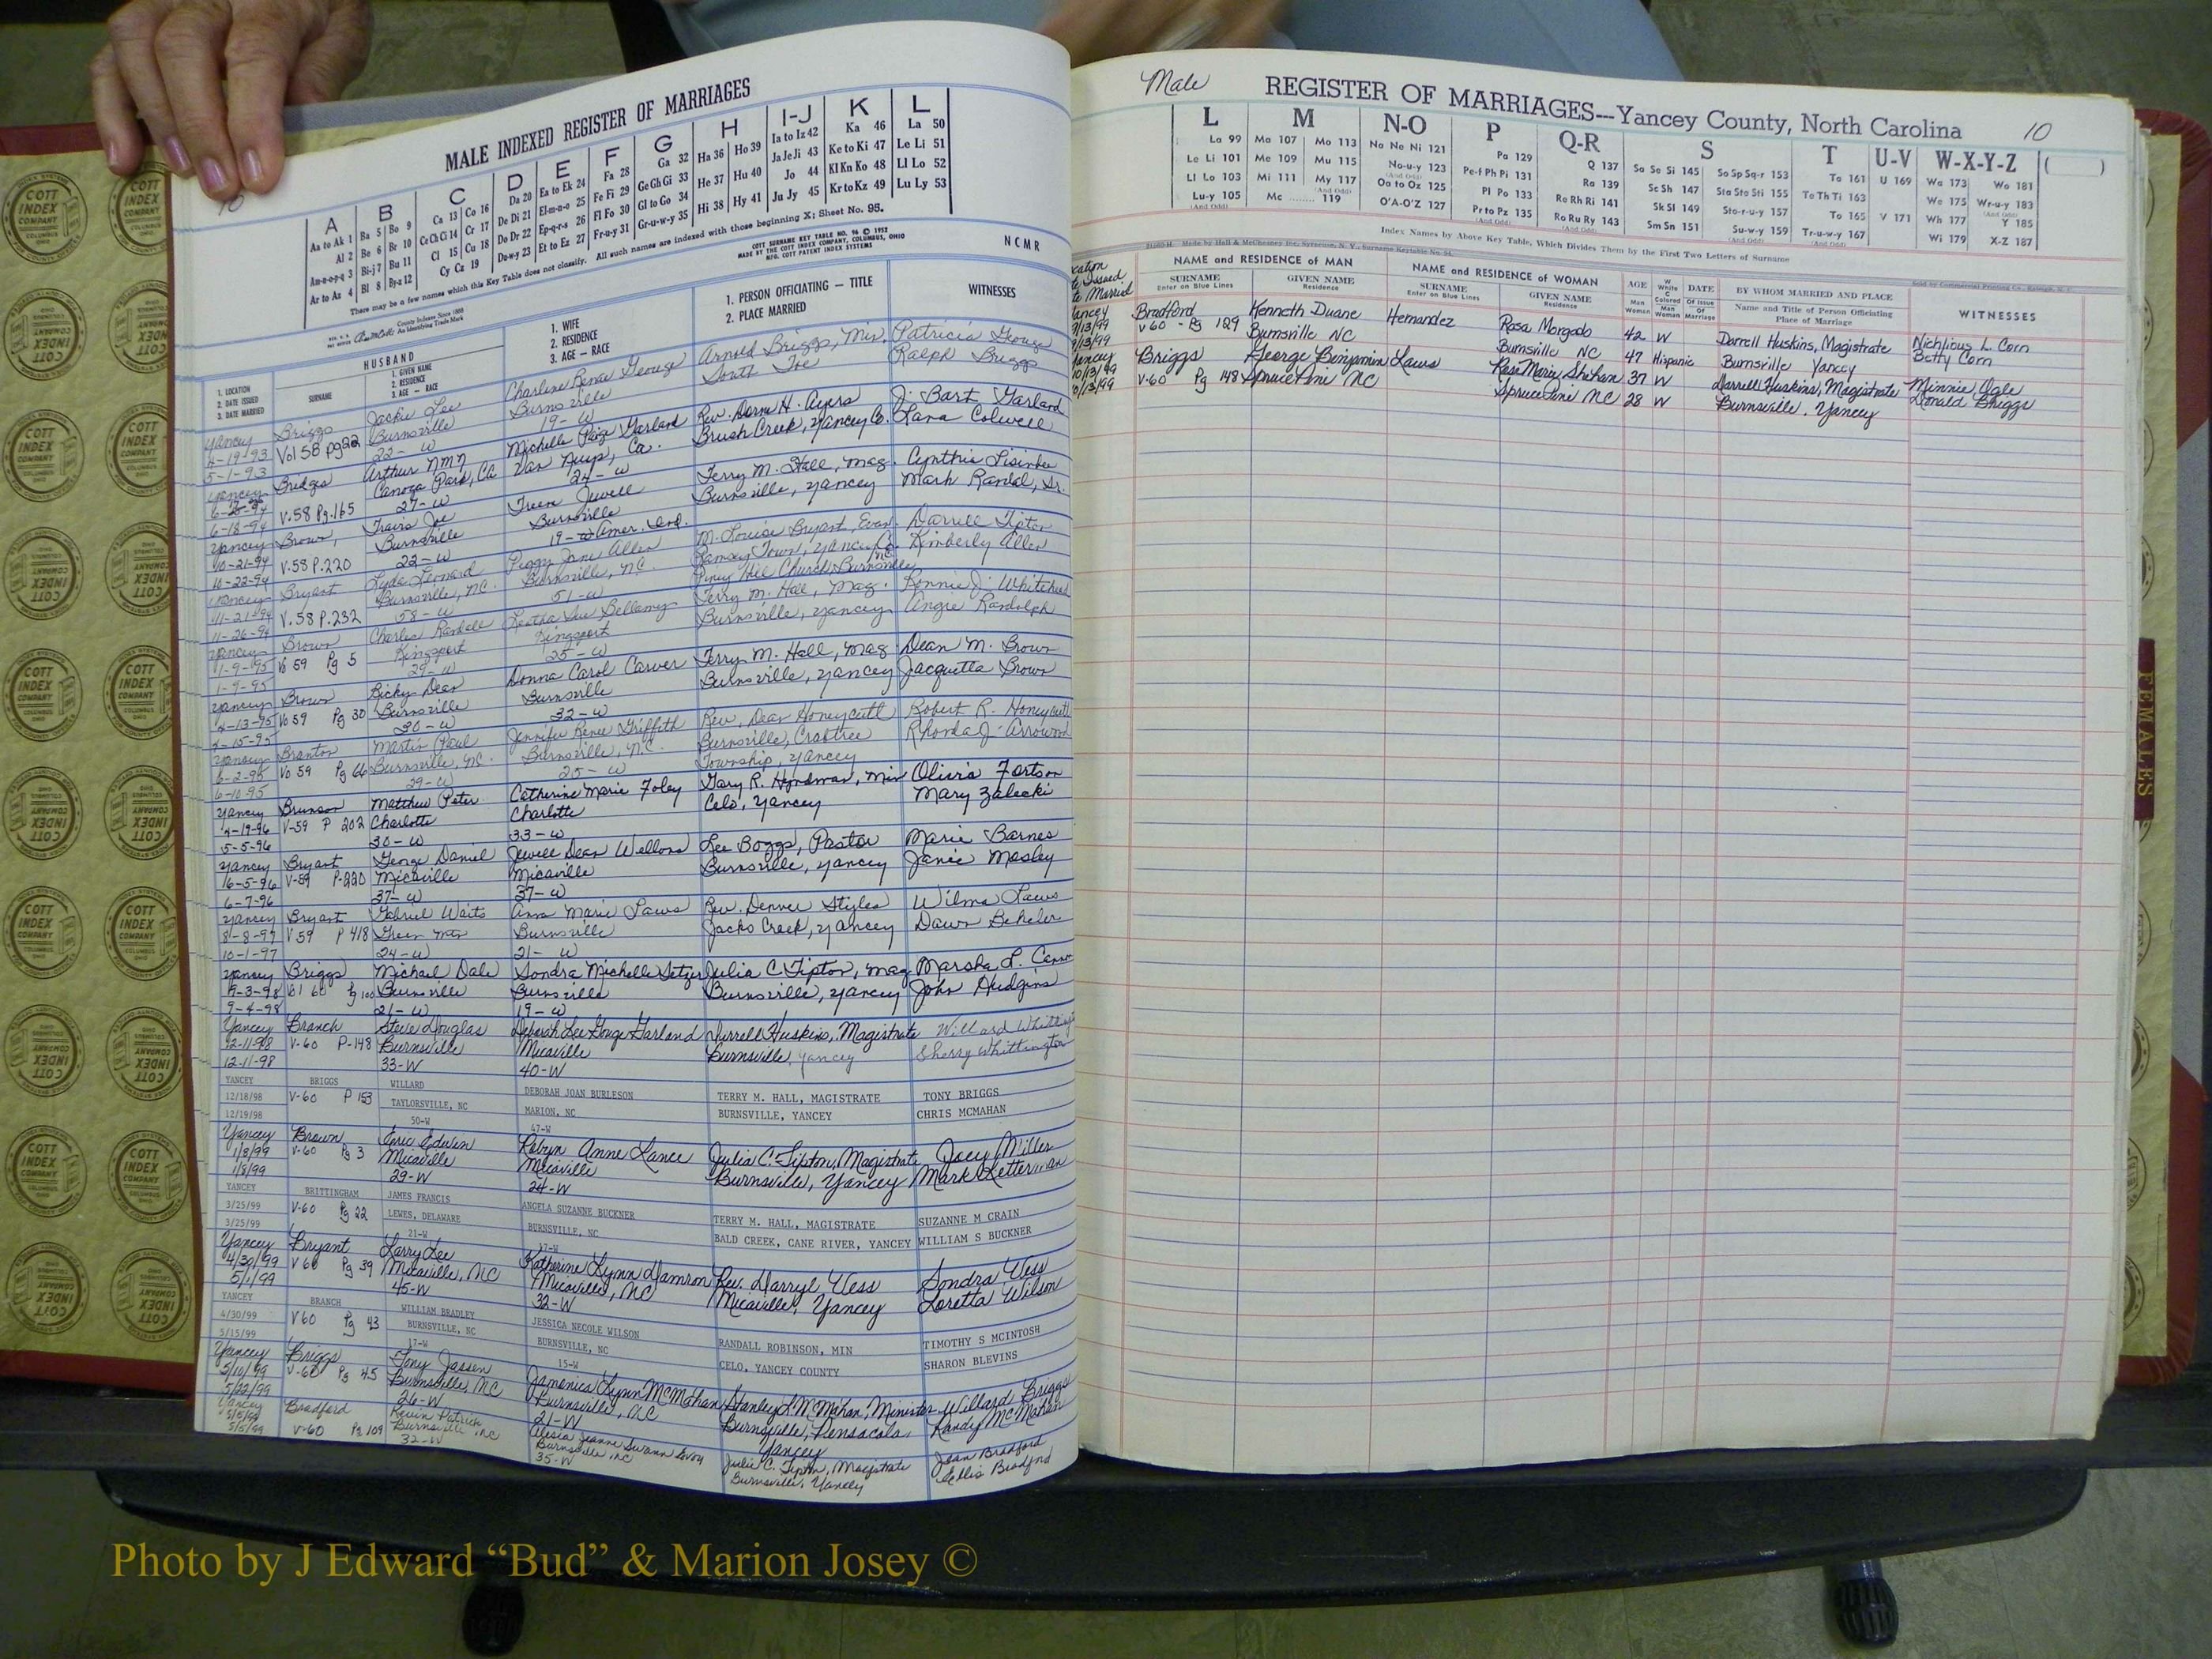 MALE INDEXED REGISTER OF MARRIAGES
10
A B C D E F G H I-J K L
Aa to Ak 1 Ba 5 Bo 9 Ca 13 Co 16 Da 20 Ea to Ek 24 Fa 28 Ga 32 Ha 36 Ho 39 Ia to Iz 42 Ka 46 La 50
Al 2 Be 6 Br 10 Ce Ch Ci 14 Cr 17 De Di 21 El-m-n-o 25 Fe Fi 29 Ge Gh Gi 33 He 37 Hu 40 Ja Je Ji 43 Ke to Ki 47 Le Li 51
Am-n-o-p-q 3 Bi-j 7 Bu 11 Cl 15 Cu 18 Do Dr 22 Ep-q-r-s 26 Fl Fo 30 Gl to Go 34 Hi 38 Hy 41 Jo 44 Kl Kn Ko 48 Ll Lo 52
Ar to Az 4 Bl 8 By-z 12 Cy Cz 19 Du-w-y 23 Et to Ez 27 Fr-u-y 31 Gr-u-w-y 35 Ju Jy 45 Kr to Kz 49 Lu Ly 53
There may be a few names which this Key Table does not classify. All such names are indexed with those beginning X; Sheet No. 95.
COTT SURNAME KEY TABLE NO. 96 © 1952
MADE BY THE COTT INDEX COMPANY, COLUMBUS, OHIO
MFG. COTT PATENT INDEX SYSTEMS
NCMR
County Indexes Since 1888
An Identifying Trade Mark
HUSBAND
1. LOCATION
2. DATE ISSUED
3. DATE MARRIED
SURNAME
1. GIVEN NAME
2. RESIDENCE
3. AGE — RACE
1. WIFE
2. RESIDENCE
3. AGE — RACE
1. PERSON OFFICIATING — TITLE
2. PLACE MARRIED
WITNESSES
Yancey Briggs Jackie Lee Charlene Renee George Arnold Briggs, Min. Patricia George
4-19-93 Vol 58 pg 22 Burnsville Burnsville South Toe Ralph Briggs
5-1-93 22-W 19-W
Yancey Bridges Arthur NMN Michelle Paige Garland Rev. Dorm H. Ayers J. Bart Garland
V-58 Pg.165 Canoga Park, CA Van Nuys, Ca. Brush Creek, Yancey Co. Lana Colwell
6-18-94 27-W 24-W
Yancey Brown, Travis Joe Jewell Terry M. Hall, Mag. Cynthia
10-21-94 V.58 P.220 Burnsville Burnsville Burnsville, Yancey Mark Randal, Sr.
10-22-94 22-W 19-W Amer. Ind.
Yancey Bryant Lyde Leonard Peggy Jane Allen M. Louise Bryant, Evan. Darrell Tipton
11-21-94 V.58 P.232 Burnsville, N.C. Burnsville, N.C. Ramsey Town, Yancey Co. Kimberly Allen
11-26-94 58-W 51-W Piney Hill Church, Burnsville NC
Yancey Brown Charles Randall Leatha Sue Bellamy Terry M. Hall, Mag. Ronnie J. Whitehead
1-9-95 Vo 59 Pg 5 Kingsport Kingsport Burnsville, Yancey Angie Randolph
1-9-95 29-W 25-W
Yancey Brown Ricky Dean Donna Carol Carver Terry M. Hall, Mag. Dean M. Brown
4-13-95 Vo 59 Pg 30 Burnsville Burnsville Burnsville, Yancey Jacquetta Brown
4-15-95 30-W 32-W
Yancey Branton Martin Paul Jennifer Renee Griffith Rev. Dean Honeycutt Robert R. Honeycutt
6-2-95 Vo 59 Pg 66 Burnsville, N.C. Burnsville, N.C. Burnsville, Crabtree Rhonda J. Arrowood
6-10-95 29-W 25-W Township, Yancey
Yancey Brunson Matthew Peter Catherine Marie Foley Gary R. Hyndman, Min Olivia Fortson
4-19-96 V-59 P 202 Charlotte Charlotte Celo, Yancey Mary Zalecki
5-5-96 30-W 33-W
Yancey Bryant George Daniel Jewell Dean Wellons Lee Boggs, Pastor Marie Barnes
6-5-96 V-59 P-220 Micaville Micaville Burnsville, Yancey Janie Mosley
6-7-96 37-W 37-W
Yancey Bryant Gabriel Waits Anna Marie Laws Rev. Denver Styles Wilma Laws
8-8-97 V 59 P 418 Green Mtn Burnsville Jacks Creek, Yancey Dawn Beheler
10-1-97 24-W 21-W
Yancey Briggs Michael Dale Sondra Michelle Setzer Julia C. Tipton, Mag Marsha L.
9-3-98 Vol 60 Pg 100 Burnsville Burnsville Burnsville, Yancey John Hudgins
9-4-98 21-W 19-W
Yancey Branch Steve Douglas Deborah Lee Gouge Garland Darrell Huskins, Magistrate Willard Whitting
12-11-98 V-60 P-148 Burnsville Micaville Burnsville, Yancey Sherry Whittington
12-11-98 33-W 40-W
YANCEY BRIGGS WILLARD DEBORAH JOAN BURLESON TERRY M. HALL, MAGISTRATE TONY BRIGGS
12/18/98 V-60 P 153 TAYLORSVILLE, NC MARION, NC BURNSVILLE, YANCEY CHRIS MCMAHAN
12/19/98 50-W 47-W
Yancey Brown Eric Edwin Robyn Anne Lance Julia C. Tipton, Magistrate Joey Miller
1/8/99 V-60 Pg 3 Micaville Micaville Burnsville, Yancey Mark Ketterman
1/8/99 29-W 24-W
YANCEY BRITTINGHAM JAMES FRANCIS ANGELA SUZANNE BUCKNER TERRY M. HALL, MAGISTRATE SUZANNE M CRAIN
3/25/99 V-60 Pg 22 LEWES, DELAWARE BURNSVILLE, NC BALD CREEK, CANE RIVER, YANCEY WILLIAM S BUCKNER
3/25/99 21-W 17-W
Yancey Bryant Larry Lee Katherine Lynn Damron Rev. Darryl Vess Sondra Vess
4/30/99 V 60 Pg 39 Micaville, NC Micaville, NC Micaville, Yancey Loretta Wilson
5/1/99 45-W 32-W
YANCEY BRANCH WILLIAM BRADLEY JESSICA NECOLE WILSON RANDALL ROBINSON, MIN TIMOTHY S MCINTOSH
4/30/99 V 60 Pg 43 BURNSVILLE, NC BURNSVILLE, NC CELO, YANCEY COUNTY SHARON BLEVINS
5/15/99 17-W 15-W
Yancey Briggs Tony Jassen Jamenica Lynn McMahan Stanley L. McMahan, Minister Willard Briggs
5/10/99 V-60 Pg 45 Burnsville, NC Burnsville, NC Burnsville, Pensacola, Randy McMahan
5/22/99 26-W 21-W Yancey
Yancey Bradford Kevin Patrick Alesia Jeanne Swann Julia C. Tipton, Magistrate Jean Bradford
V-60 Pg 109 Burnsville, NC Burnsville, NC Burnsville, Yancey Ellis Bradford
32-W 35-W
Male REGISTER OF MARRIAGES---Yancey County, North Carolina 10
L M N-O P Q-R S T U-V W-X-Y-Z ( )
La 99 Ma 107 Mo 113 Na Ne Ni 121 Pa 129 Q 137 Sa Se Si 145 So Sp Sq-r 153 Ta 161 U 169 Wa 173 Wo 181
Le Li 101 Me 109 Mu 115 No-u-y 123 Pe-f Ph Pi 131 Ra 139 Sc Sh 147 Sta Ste Sti 155 Te Th Ti 163 We 175 Wr-u-y 183
Ll Lo 103 Mi 111 My 117 Oa to Oz 125 Pl Po 133 Re Rh Ri 141 Sk Sl 149 Sto-r-u-y 157 To 165 V 171 Wh 177 Y 185
Lu-y 105 Mc 119 O'A-O'Z 127 Pr to Pz 135 Ro Ru Ry 143 Sm Sn 151 Su-w-y 159 Tr-u-w-y 167 Wi 179 X-Z 187
Index Names by Above Key Table, Which Divides Them by the First Two Letters of Surname
Made by Hall & McChesney Inc., Syracuse, N. Y., Surname Keytable No.
Sold by Commercial Printing Co., Raleigh, N. C.
NAME and RESIDENCE of MAN
SURNAME
Enter on Blue Lines
GIVEN NAME
Residence
NAME and RESIDENCE of WOMAN
SURNAME
Enter on Blue Lines
GIVEN NAME
Residence
AGE
Man
Woman
W
White
C
Colored
Man
Woman
DATE
Of Issue
Of
Marriage
BY WHOM MARRIED AND PLACE
Name and Title of Person Officiating
Place of Marriage
WITNESSES
Bradford Kenneth Duane Hernandez Rosa Morgado 42 W Darrell Huskins, Magistrate Nichlious L. Corn
V60 - Pg 129 Burnsville NC Burnsville NC 47 Hispanic Burnsville Yancey Betty Corn
Briggs George Benjamin Laws Rose Marie Shehan 37 W Darrell Huskins, Magistrate Minnie Ogle
V-60 Pg 148 Spruce Pine NC Spruce Pine NC 28 W Burnsville, Yancey Donald Briggs
FEMALES
COTT
INDEX
COMPANY
COLUMBUS
OHIO
Photo by J Edward “Bud” & Marion Josey ©